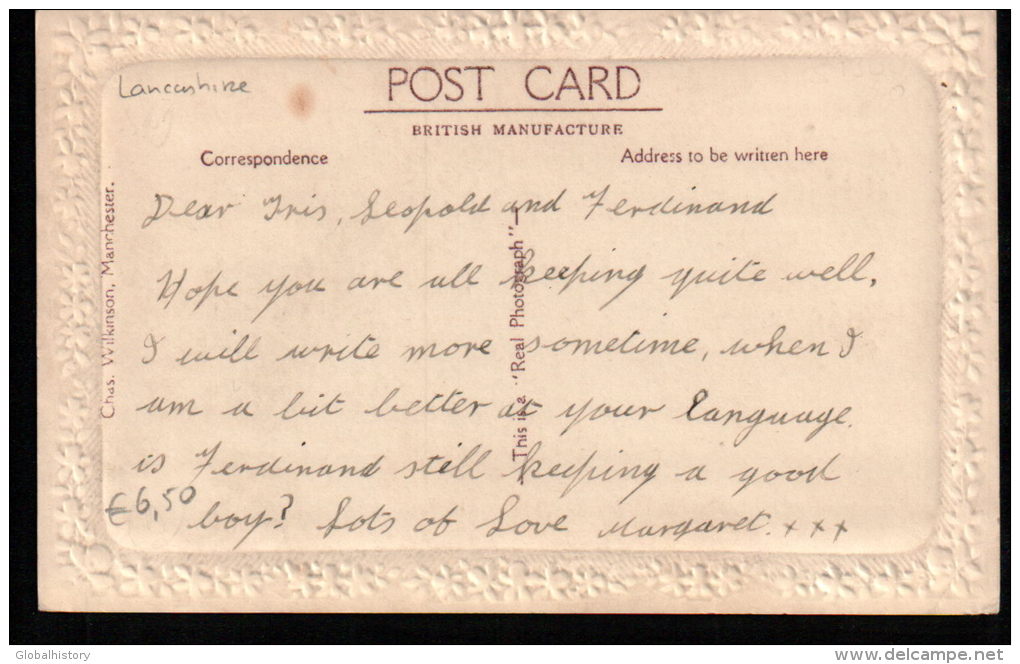 Lancashire
POST CARD
BRITISH MANUFACTURE
Correspondence
Address to be written here
Chas. Wilkinson, Manchester.
This is a "Real Photograph"
Dear Iris, Leopold and Ferdinand
Hope you are all keeping quite well,
I will write more sometime, when I
am a bit better at your language.
is Ferdinand still keeping a good
boy? Lots of Love Margaret. xxx
€6,50
Globalhistory
www.delcampe.net